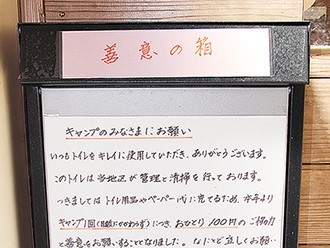 善意の箱
キャンプのみなさまにお願い
いつもトイレをキレイに使用していただき、ありがとうございます。
このトイレは当地区が管理と清掃を行っております。
つきましては トイレ用品やペーパー代に充てるため、本年より
キャンプ1回(日数にかかわらず)につき、おひとり100円のご協力
と善意をお願いすることとなりました。なにとぞ宜しくお願い